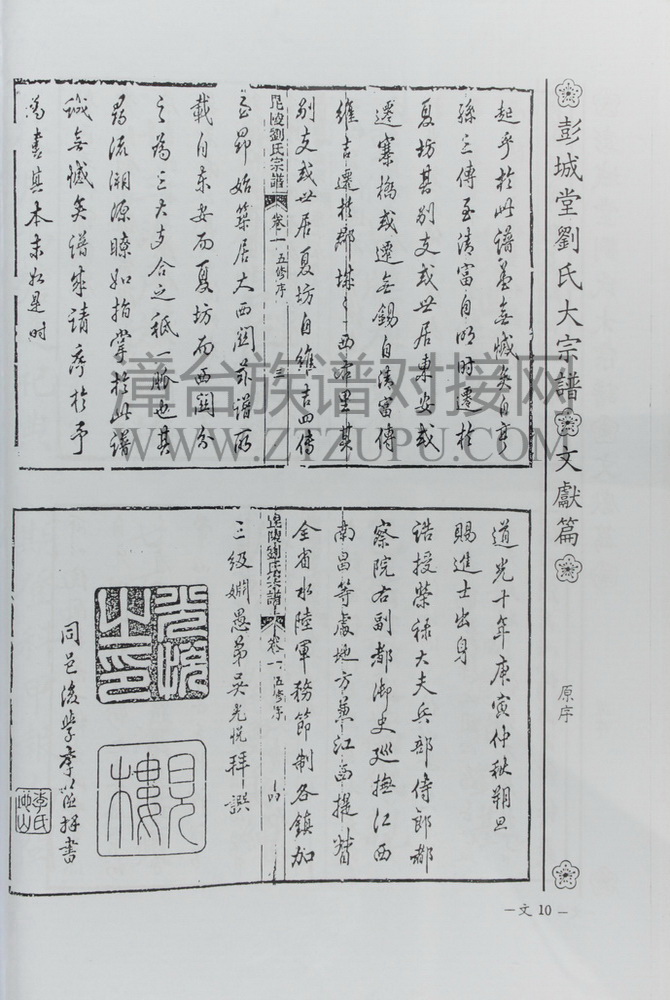 彭城堂劉氏大宗譜 文獻篇
原序
起乎於此譜蓋無憾矣自亨
孫三傳至清富自明時遷於
夏坊其別支或世居東安或
遷寨橋或遷無錫自清富傳
維吉遷於郡城之西右里其
別支或世居夏坊自維吉四傳
毘陵劉氏宗譜 卷一 五修序 三
至昂始築居大西關茲譜所
載自東安而夏坊而西關分
之為三大支合之祗一脈也其
尋流溯源瞭如指掌於此譜
誠無憾矣譜成請序於予
為書其本末如是時
道光十年庚寅仲秋朔旦
賜進士出身
誥授榮祿大夫兵部侍郎都
察院右副都御史巡撫江西
南昌等處地方兼江西提督
全省水陸軍務節制各鎮加
毘陵劉氏宗譜 卷一 五修序 四
三級姻愚弟吳光悅拜譔
光悅之印
見樓
同邑後學李 拜書
李氏
文 10
章台族谱对接网
WWW.ZTZUPU.COM